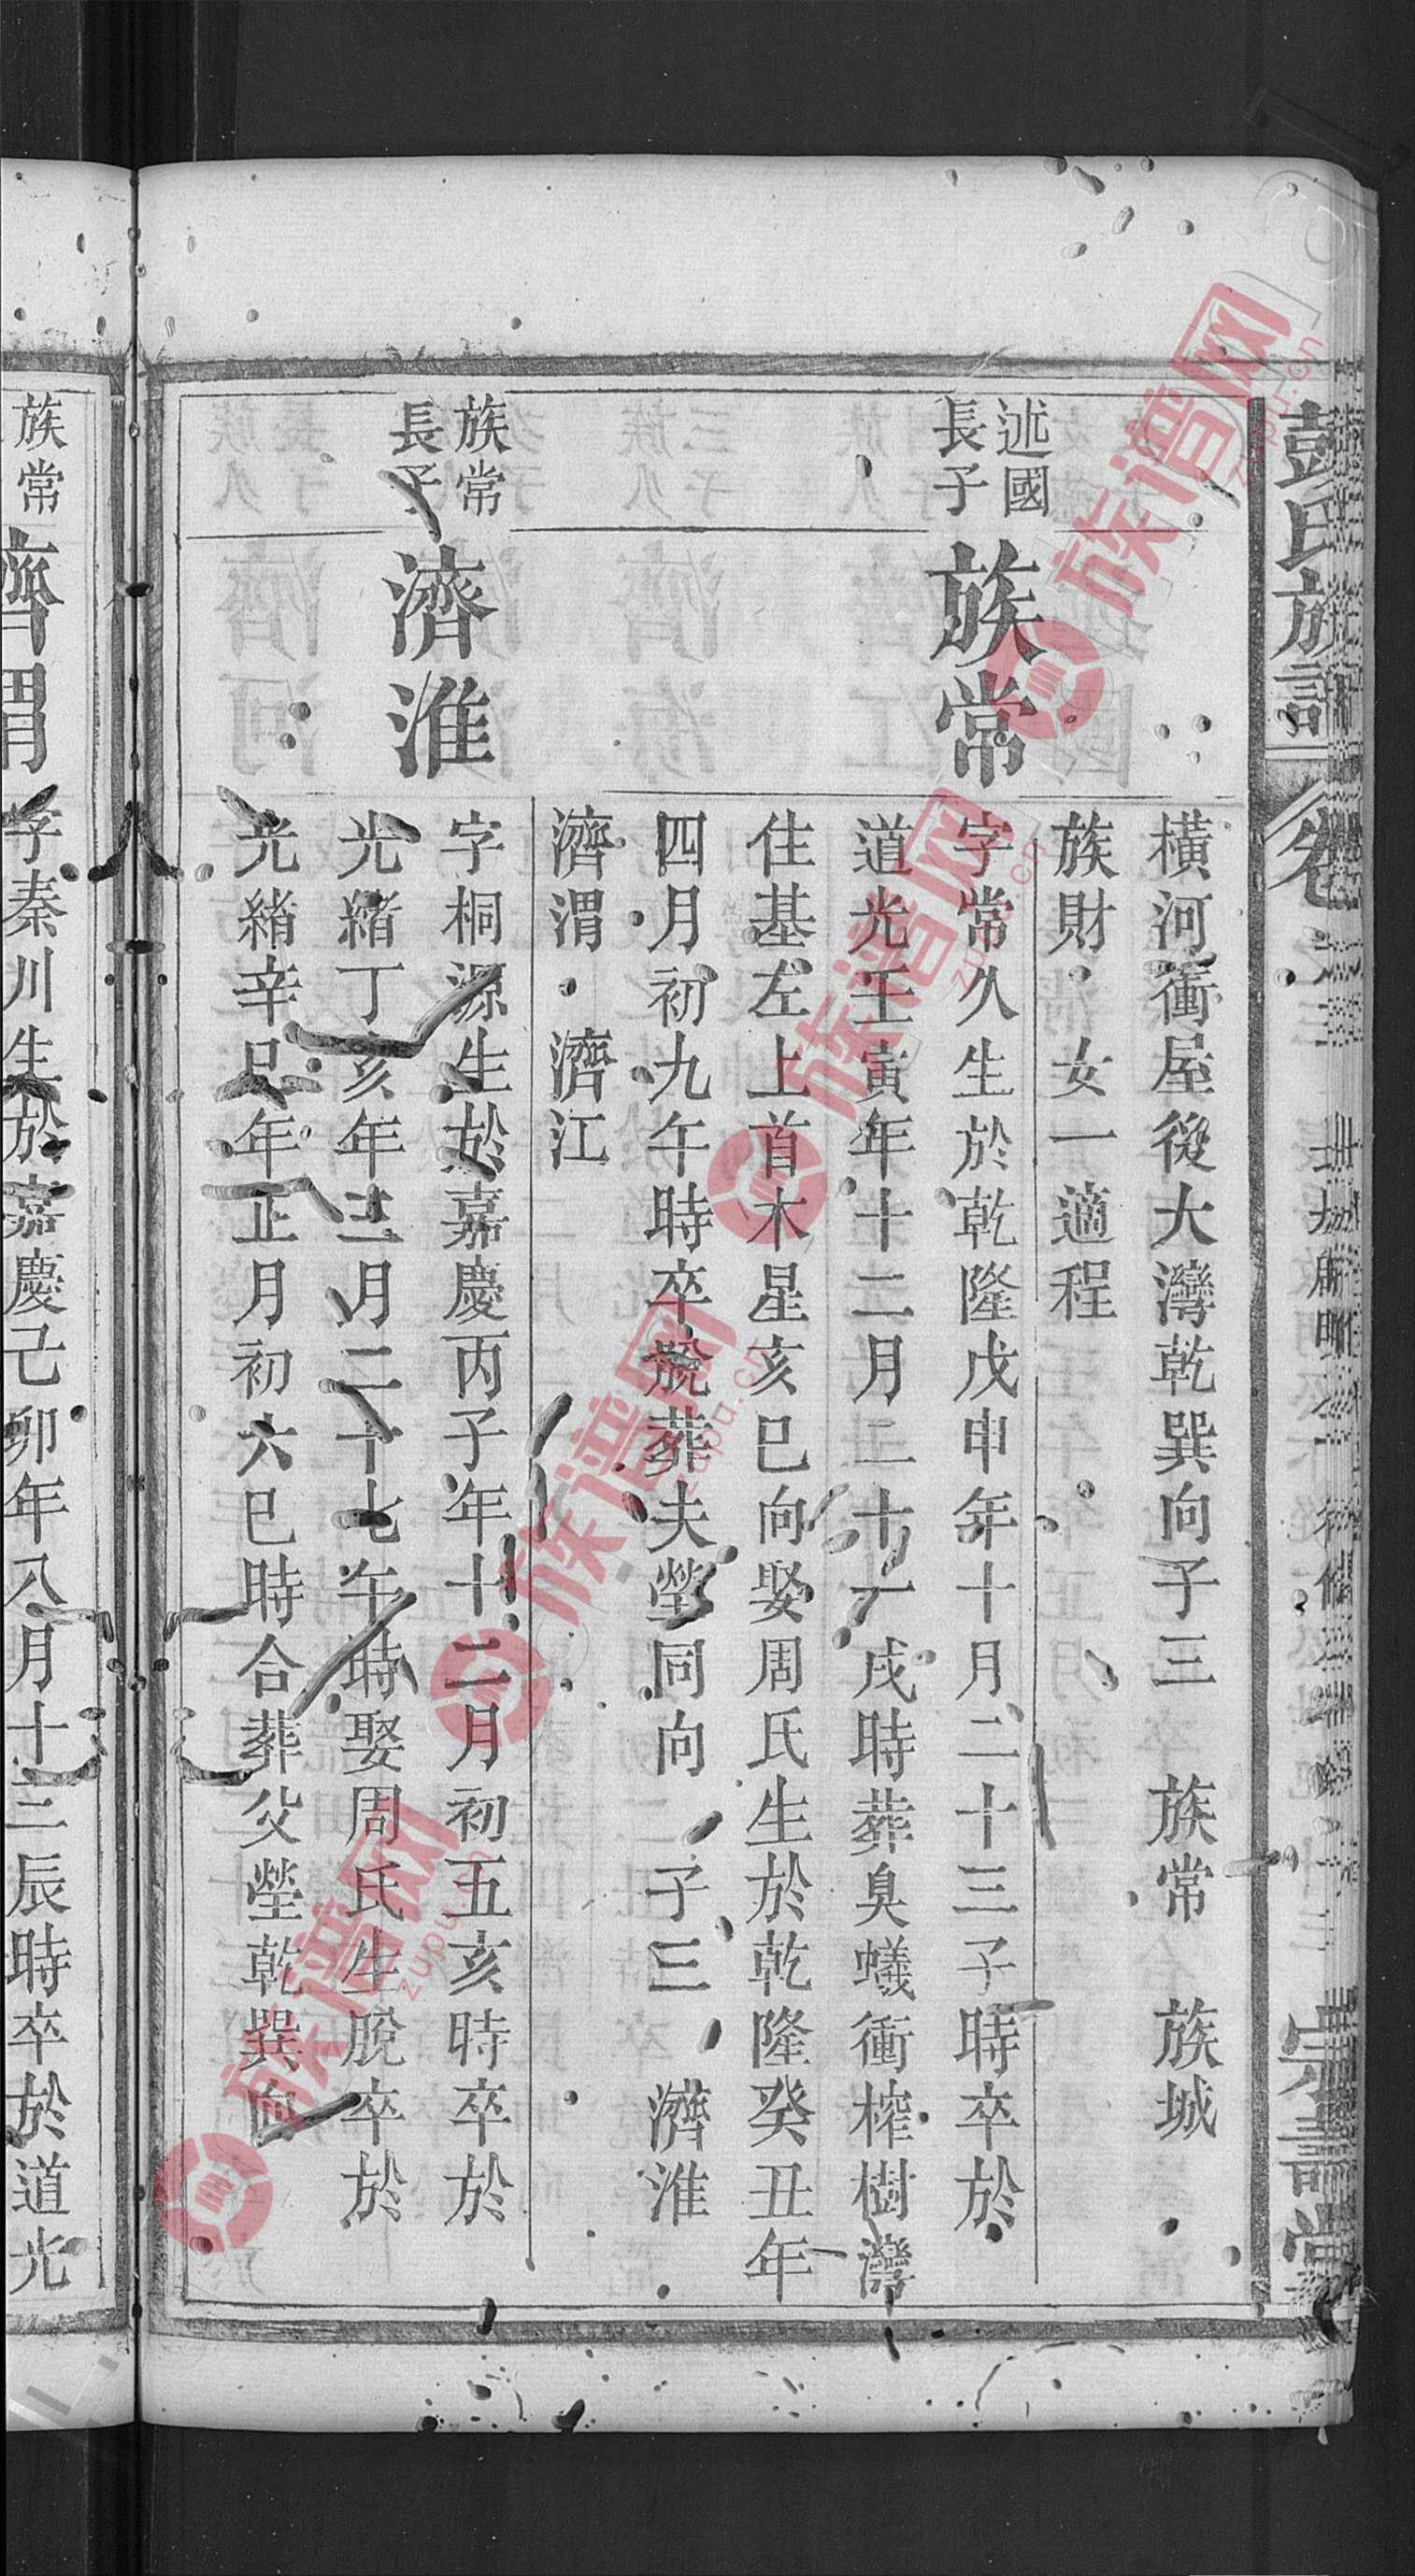 彭氏族譜
橫河衝屋後大灣乾巽向子三 族常 族城
族財 女一適程
述國
長子
族常
字常久生於乾隆戊申年十月二十三子時卒於
道光壬寅年十二月二十一戌時葬臭蟻衝榨樹灣
住基左上首木星亥巳向娶周氏生於乾隆癸丑年
四月初九午時卒脫葬夫塋同向 子三 濟淮
濟渭 濟江
族常
長子
濟淮
字桐源生於嘉慶丙子年十二月初五亥時卒於
光緒丁亥年三月二十七午時娶周氏生脫卒於
光緒辛巳年正月初六巳時合葬父塋乾巽向
族常
濟渭
字秦川生於嘉慶己卯年八月十三辰時卒於道光
族谱网
zupu.cn
族谱网
zupu.cn
族谱网
zupu.cn
族谱网
zupu.cn